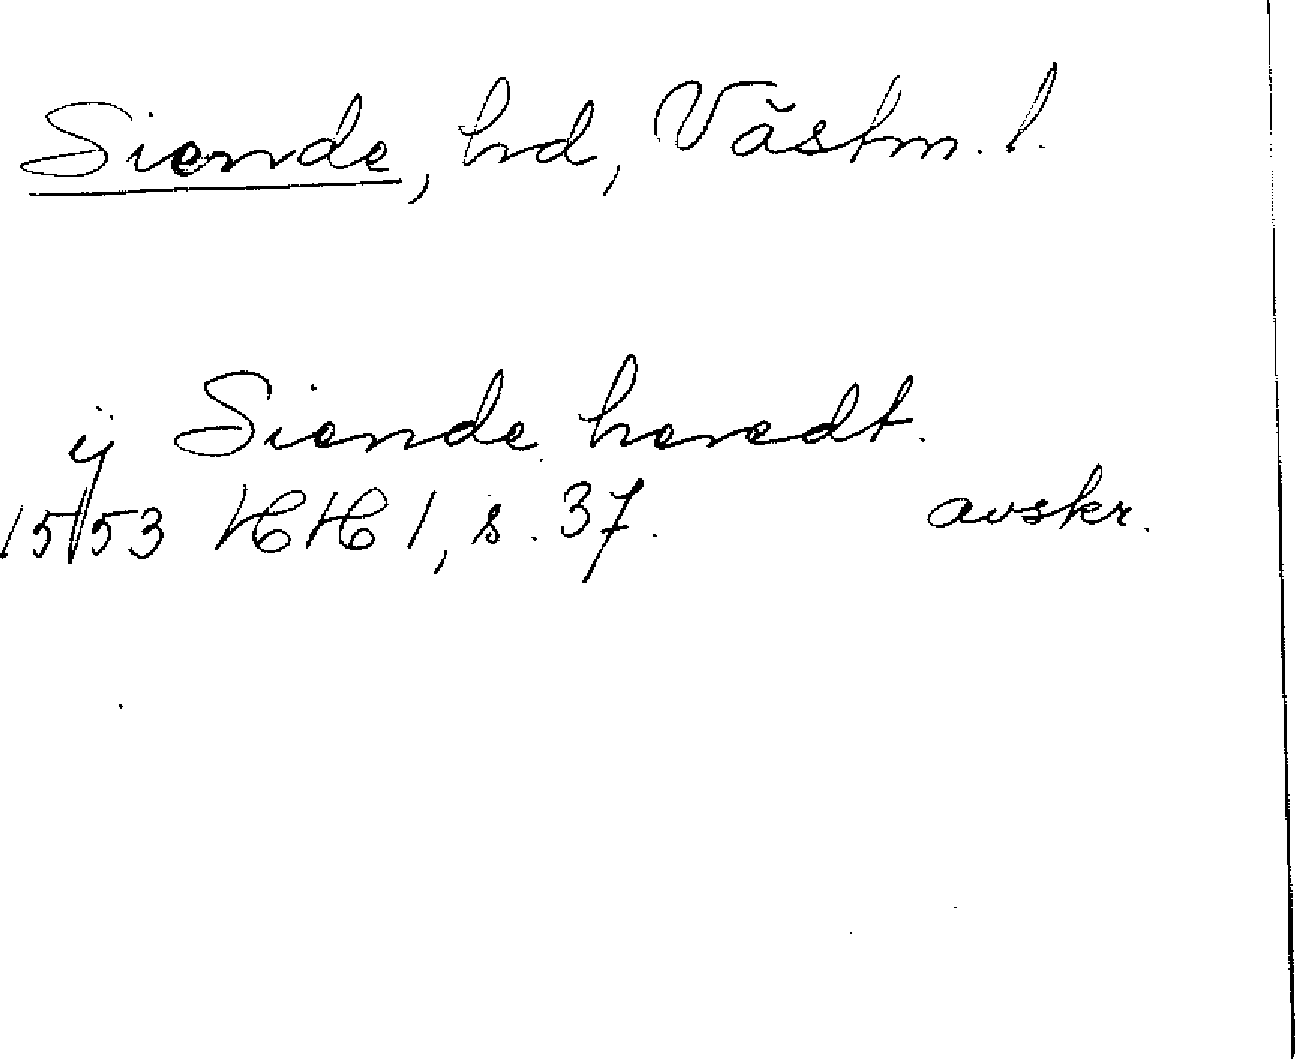 Siende, hd, Västm. l.
ÿ Siende heredt.
1553 HH 1, s. 37. avskr.